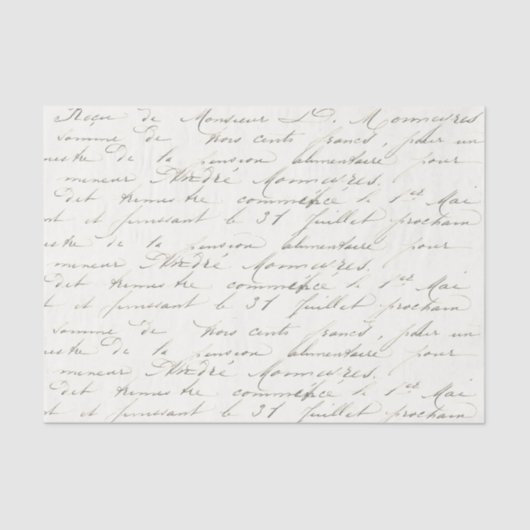 Reçu de Monsieur D. Monnieres
somme de trois cents francs, pour un
mestre de la pension alimentaire pour
mineur André Monnieres.
Dit trimestre commence le 1er Mai
et finissant le 31 juillet prochain
mestre de la pension alimentaire pour
mineur André Monnieres.
Dit trimestre commence le 1er Mai
et finissant le 31 juillet prochain
somme de trois cents francs, pour un
mestre de la pension alimentaire pour
mineur André Monnieres.
Dit trimestre commence le 1er Mai
et finissant le 31 juillet prochain